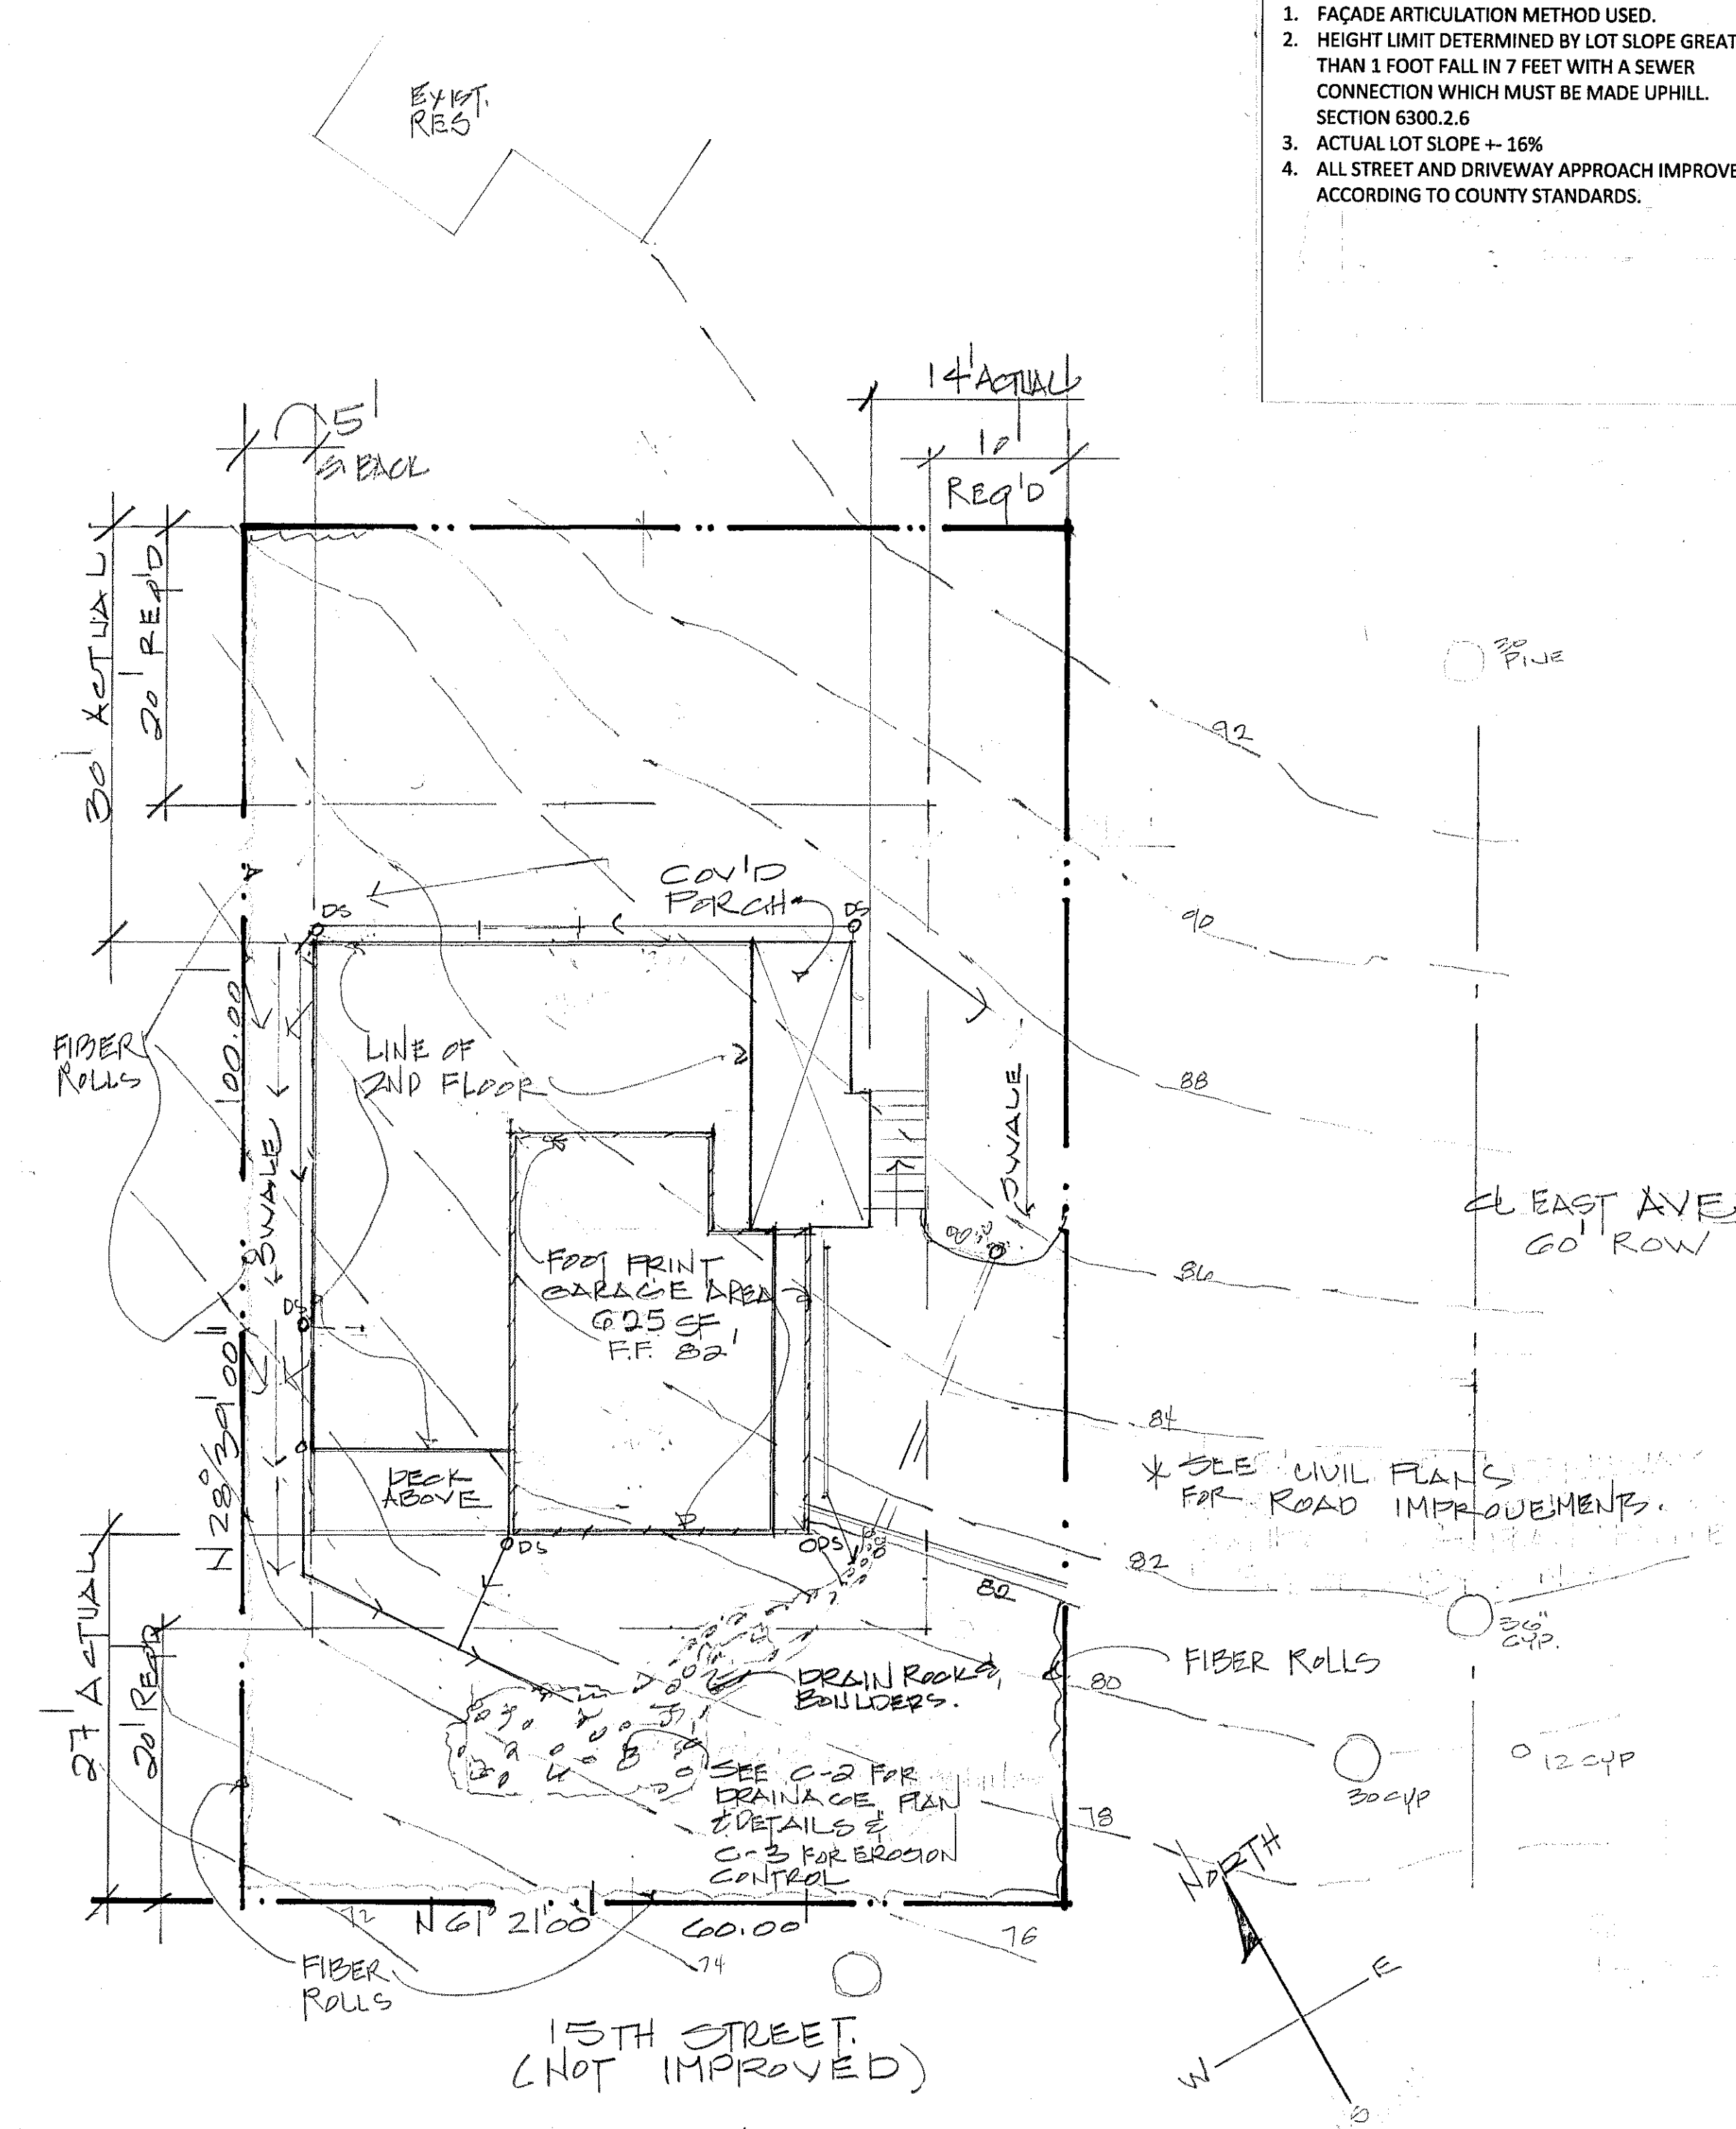 1. FAÇADE ARTICULATION METHOD USED.
2. HEIGHT LIMIT DETERMINED BY LOT SLOPE GREAT
THAN 1 FOOT FALL IN 7 FEET WITH A SEWER
CONNECTION WHICH MUST BE MADE UPHILL.
SECTION 6300.2.6
3. ACTUAL LOT SLOPE +- 16%
4. ALL STREET AND DRIVEWAY APPROACH IMPROVE
ACCORDING TO COUNTY STANDARDS.
EXIST.
RES
14' ACTUAL
5'
BACK
10'
REQ'D
30' ACTUAL
20' REQ'D
30
PINE
92
COV'D
PORCH
DS
DS
90
100.00
FIBER
ROLLS
LINE OF
2ND FLOOR
88
SWALE
SWALE
℄ EAST AVE
60' ROW
FOOT PRINT
GARAGE AREA
625 SF
F.F. 82'
86
DS
N 28° 39' 00"
84
* SEE CIVIL PLANS
FOR ROAD IMPROVEMENTS.
DECK
ABOVE
DS
DS
82
82
36"
CYP.
27' ACTUAL
20' REQD
FIBER ROLLS
DRAIN ROCK &
BOULDERS.
80
12 CYP
30 CYP
SEE C-2 FOR
DRAINAGE PLAN
& DETAILS &
C-3 FOR EROSION
CONTROL
78
NORTH
72
N 61° 21' 00"
60.00'
76
74
FIBER
ROLLS
E
W
S
15TH STREET.
(NOT IMPROVED)